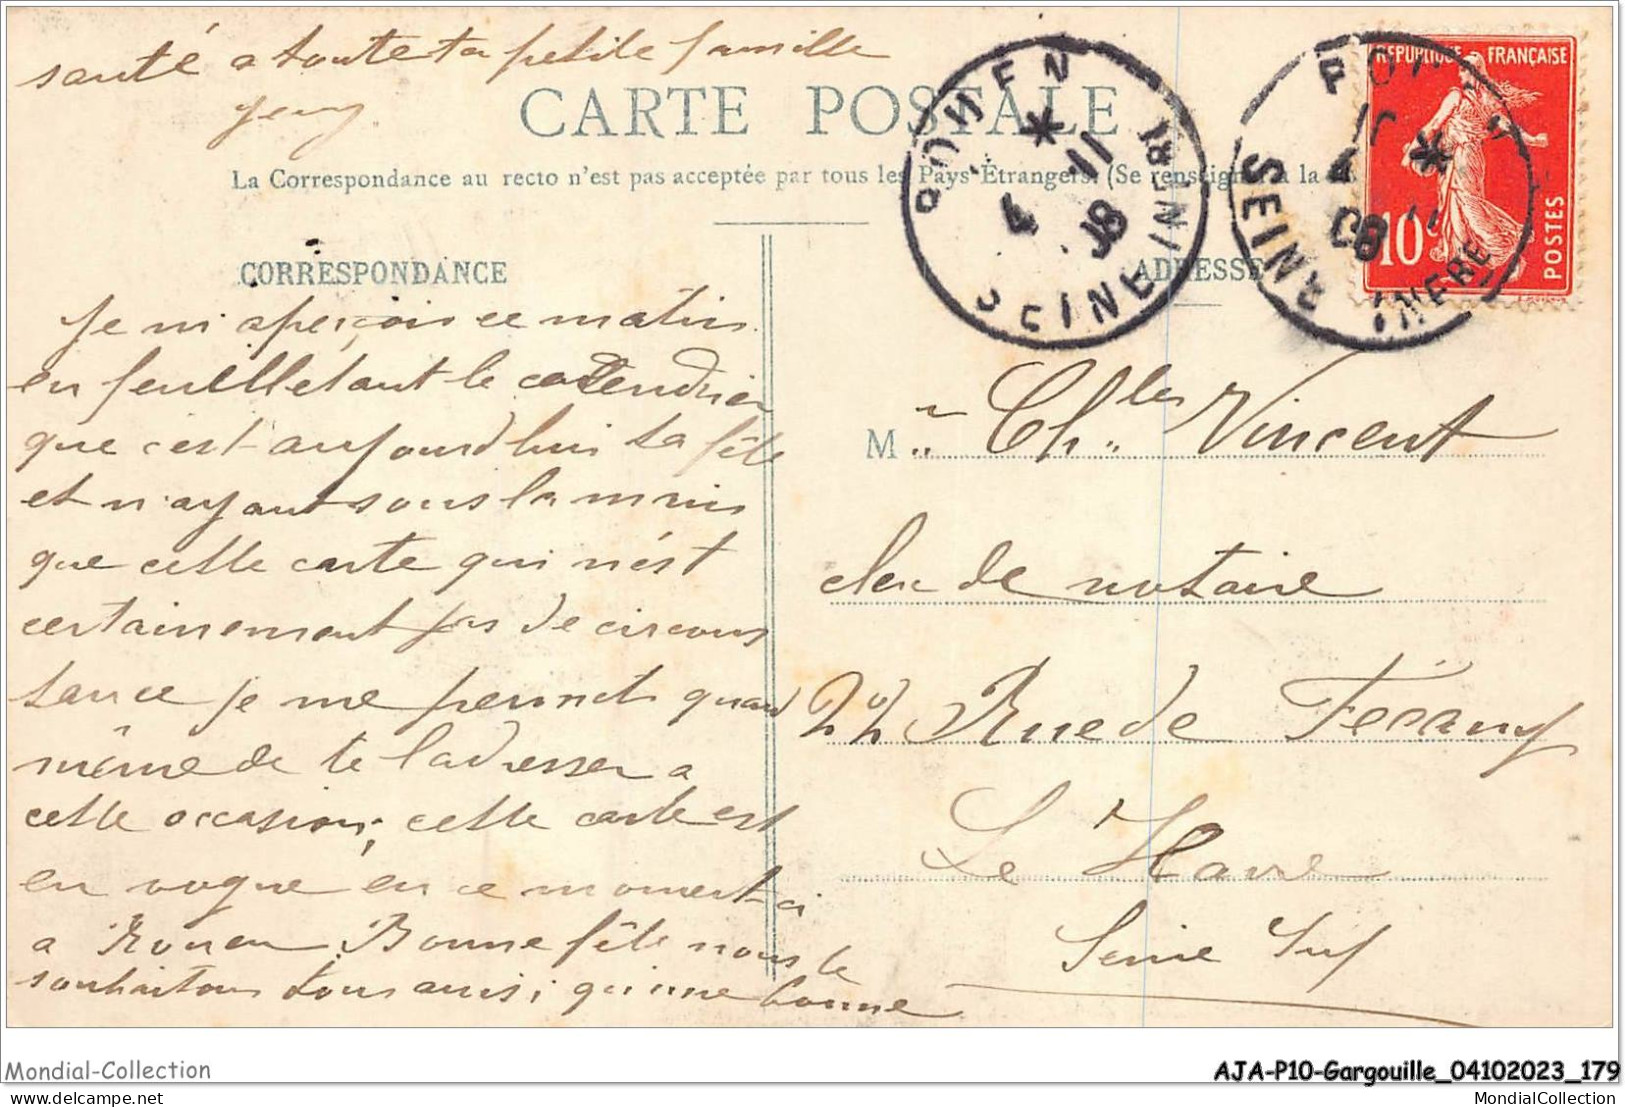 santé a toute ta petite famille
CARTE POSTALE
La Correspondance au recto n'est pas acceptée par tous les Pays Étrangers. (Se renseigner à la
CORRESPONDANCE
Je m'aperçois ce matin
en feuilletant le calendrier
que c'est aujourd'hui ta fête
et n'ayant sous la main
que cette carte qui n'est
certainement pas de circons
tance je me permets quand
même de te l'adresser a
cette occasion; cette carte est
en vogue en ce moment-ci
a Rouen. Bonne fête nous te
souhaitons tous ainsi qu'une bonne
ROUEN
* 4 -11 08
SEINE INFRE
SEINE INFERE
4 * 11 08
RÉPUBLIQUE FRANÇAISE
10c
POSTES
ADRESSE
M. Ch les Vincent
clerc de notaire
22 Rue de Fécamp
Le Havre
Seine Inf
Mondial-Collection
AJA-P10-Gargouille_04102023_179
delcampe.net
MondialCollection